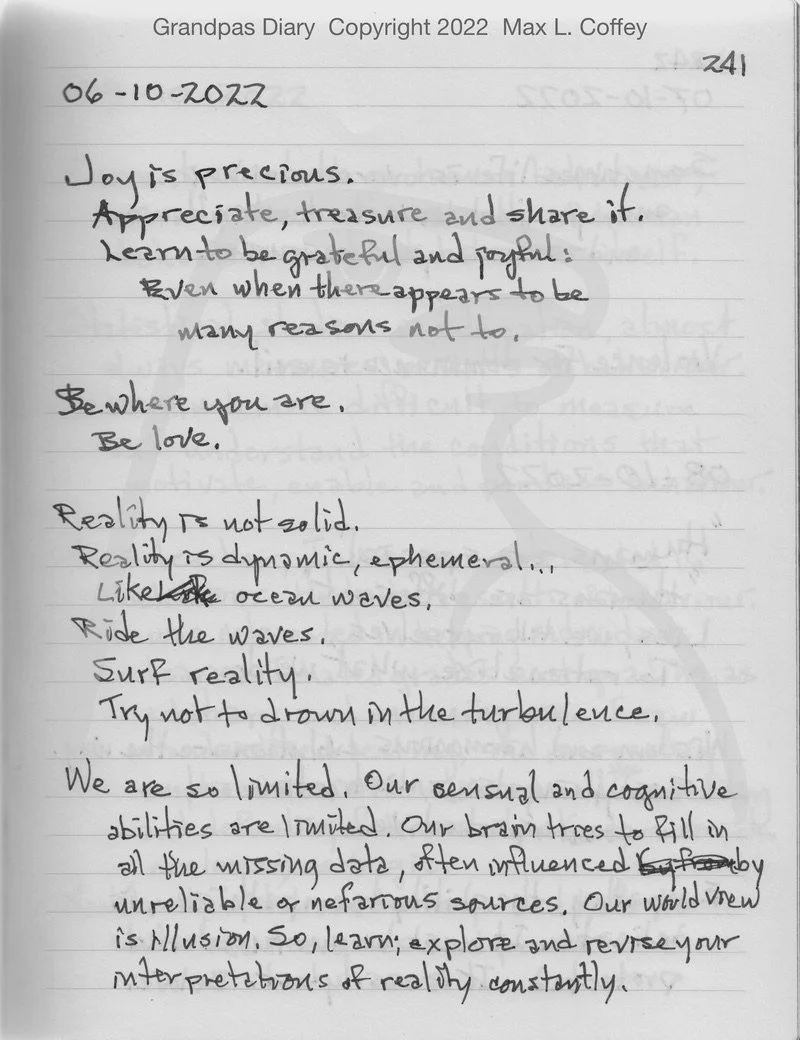 Grandpas Diary Copyright 2022 Max L. Coffey
241
06-10-2022
Joy is precious.
Appreciate, treasure and share it.
Learn to be grateful and joyful:
Even when there appears to be
many reasons not to.
Be where you are.
Be love.
Reality is not solid.
Reality is dynamic, ephemeral...
Like ocean waves.
Ride the waves.
Surf reality.
Try not to drown in the turbulence.
We are so limited. Our sensual and cognitive
abilities are limited. Our brain tries to fill in
all the missing data, often influenced by
unreliable or nefarious sources. Our world view
is illusion. So, learn; explore and revise your
interpretations of reality constantly.